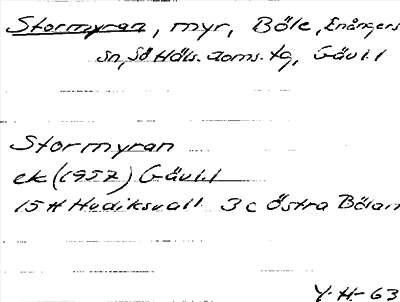 Stormyran, myr, Böle, Enångers
sn, Sö Häls. doms. tg, Gävl.l
Stormyran
ek (1957) Gävl.l
15 H Hudiksvall 3 c Östra Bölan
Y. H-63